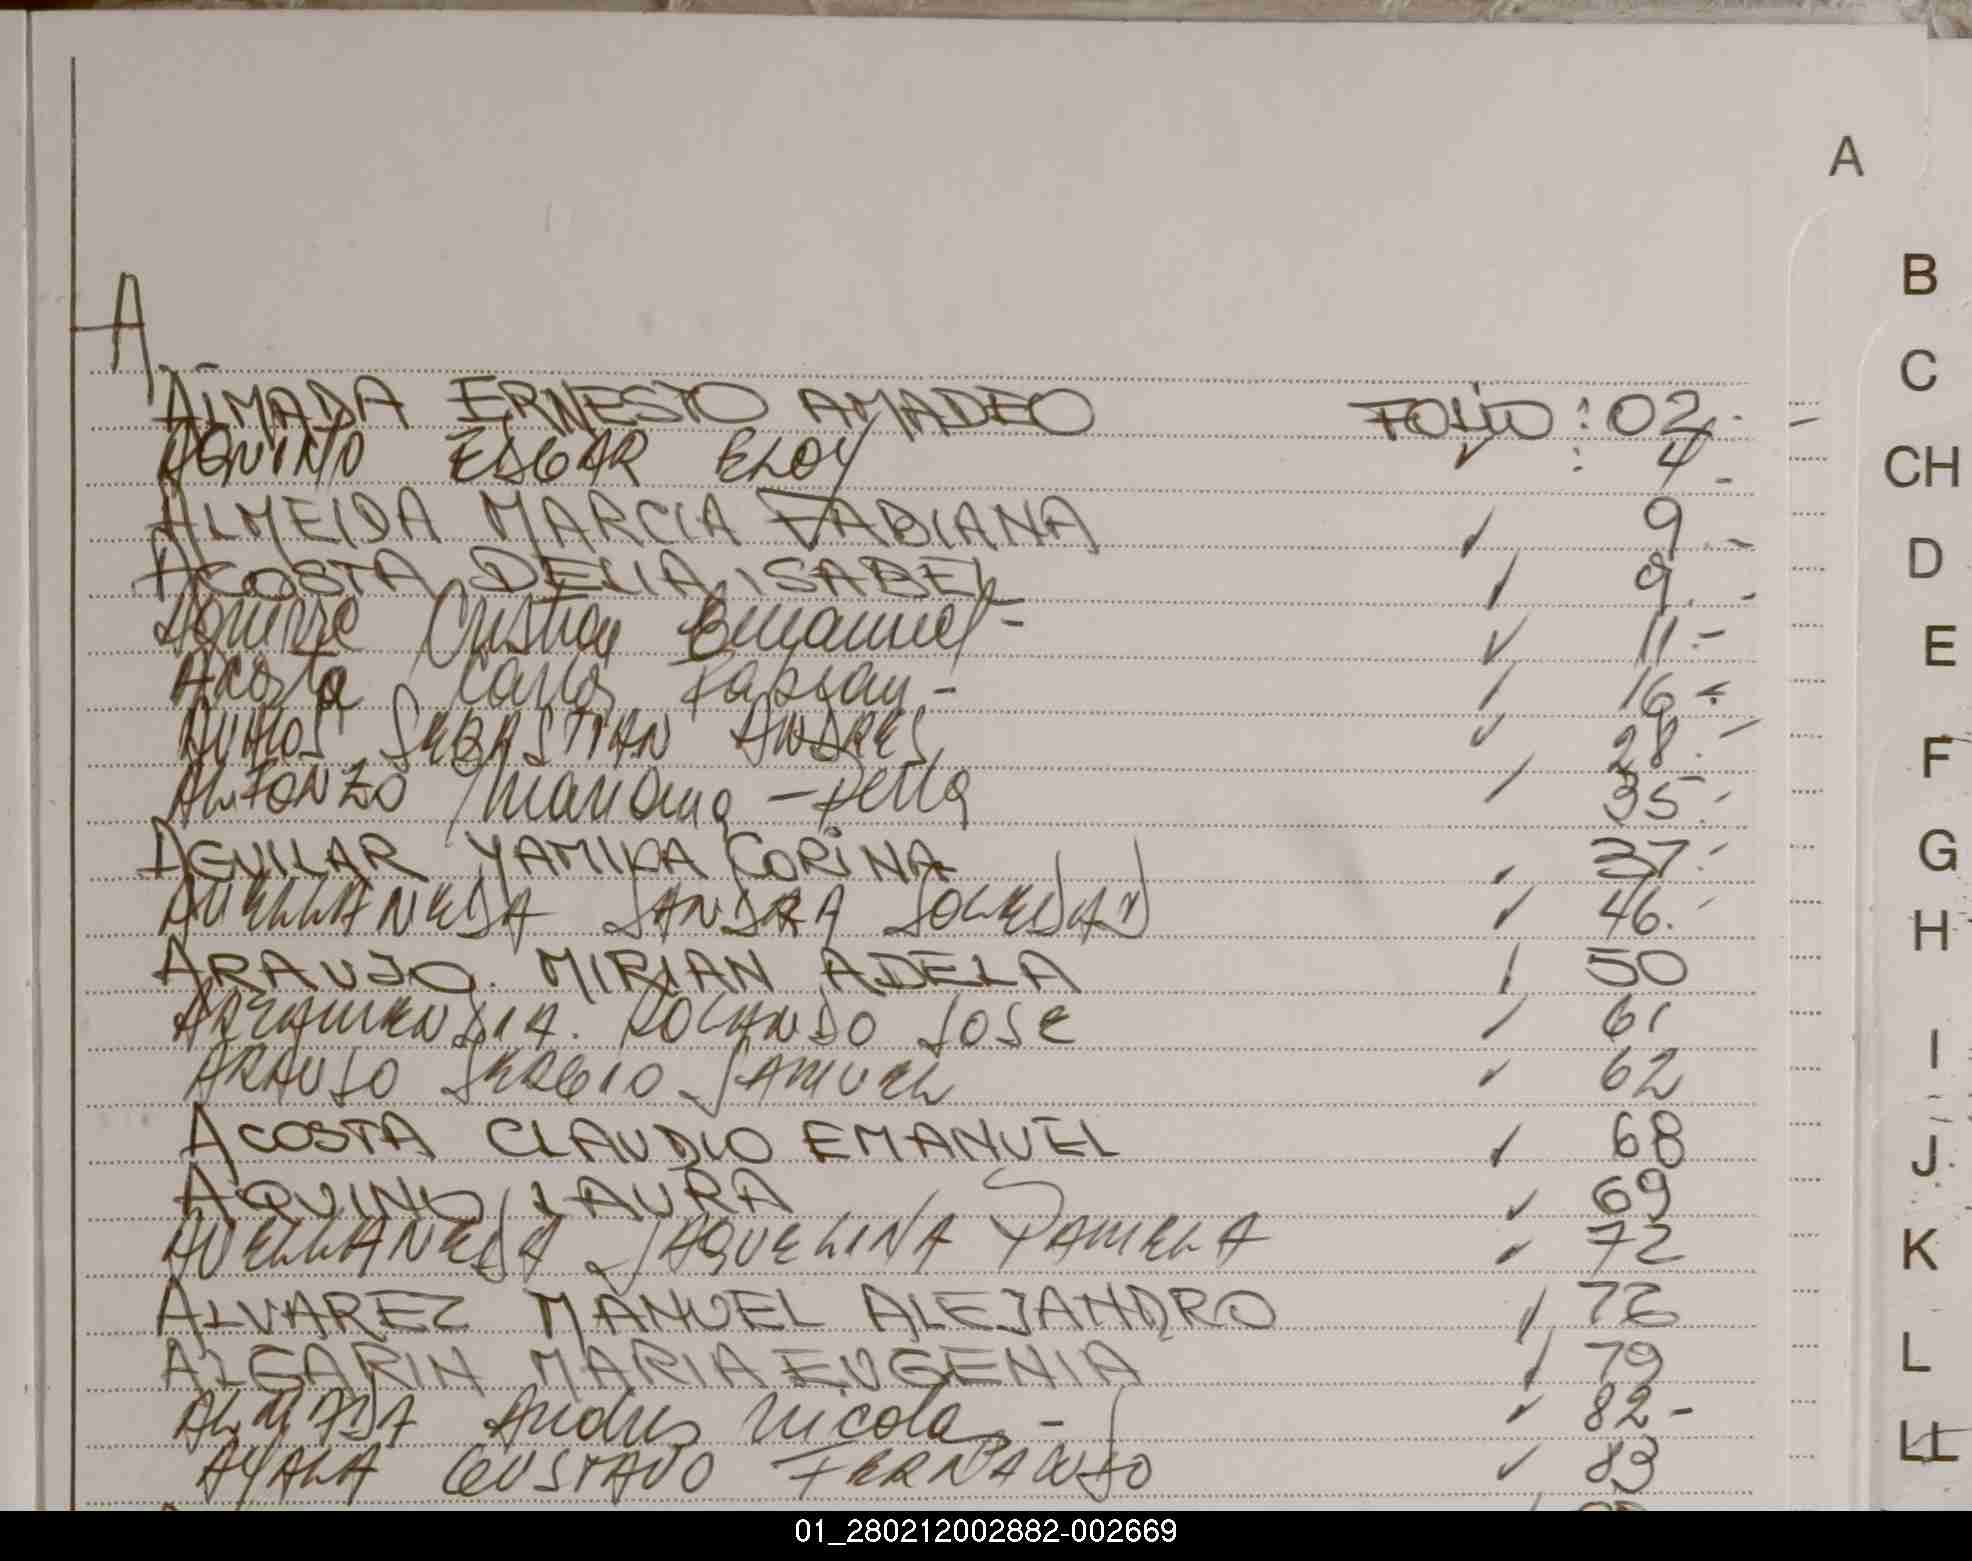 A
A
ALMADA ERNESTO AMADEO FOLIO : 02.-
AQUINO EDGAR ELOY : 4-
ALMEIDA MARCIA FABIANA 9.-
ACOSTA DELIA ISABEL 9.-
Aguirre Cristian Emmanuel- 11-
Acosta Carlos Fabian- 16
AVALOS SEBASTIAN ANDRES 28.-
ALFONZO Mariana - 35.-
AGUILAR YAMILA CORINA 37.-
AVELLANEDA SANDRA SOLEDAD 46.-
ARAUJO. MIRIAN ADELA 50
ARZAMENDIA. ROLANDO JOSE 61
ARAUJO SERGIO SAMUEL 62
ACOSTA CLAUDIO EMANUEL 68
AQUINO LAURA 69
AVELLANEDA JAQUELINA PAMELA 72
ALVAREZ MANUEL ALEJANDRO
ALGARIN MARIA EUGENIA 79
ALMADA Andres Nicolas - 82-
AYALA GUSTAVO FERNANDO 83
B
C
CH
D
E
F
G
H
I
J
K
L
LL
01_280212002882-002669